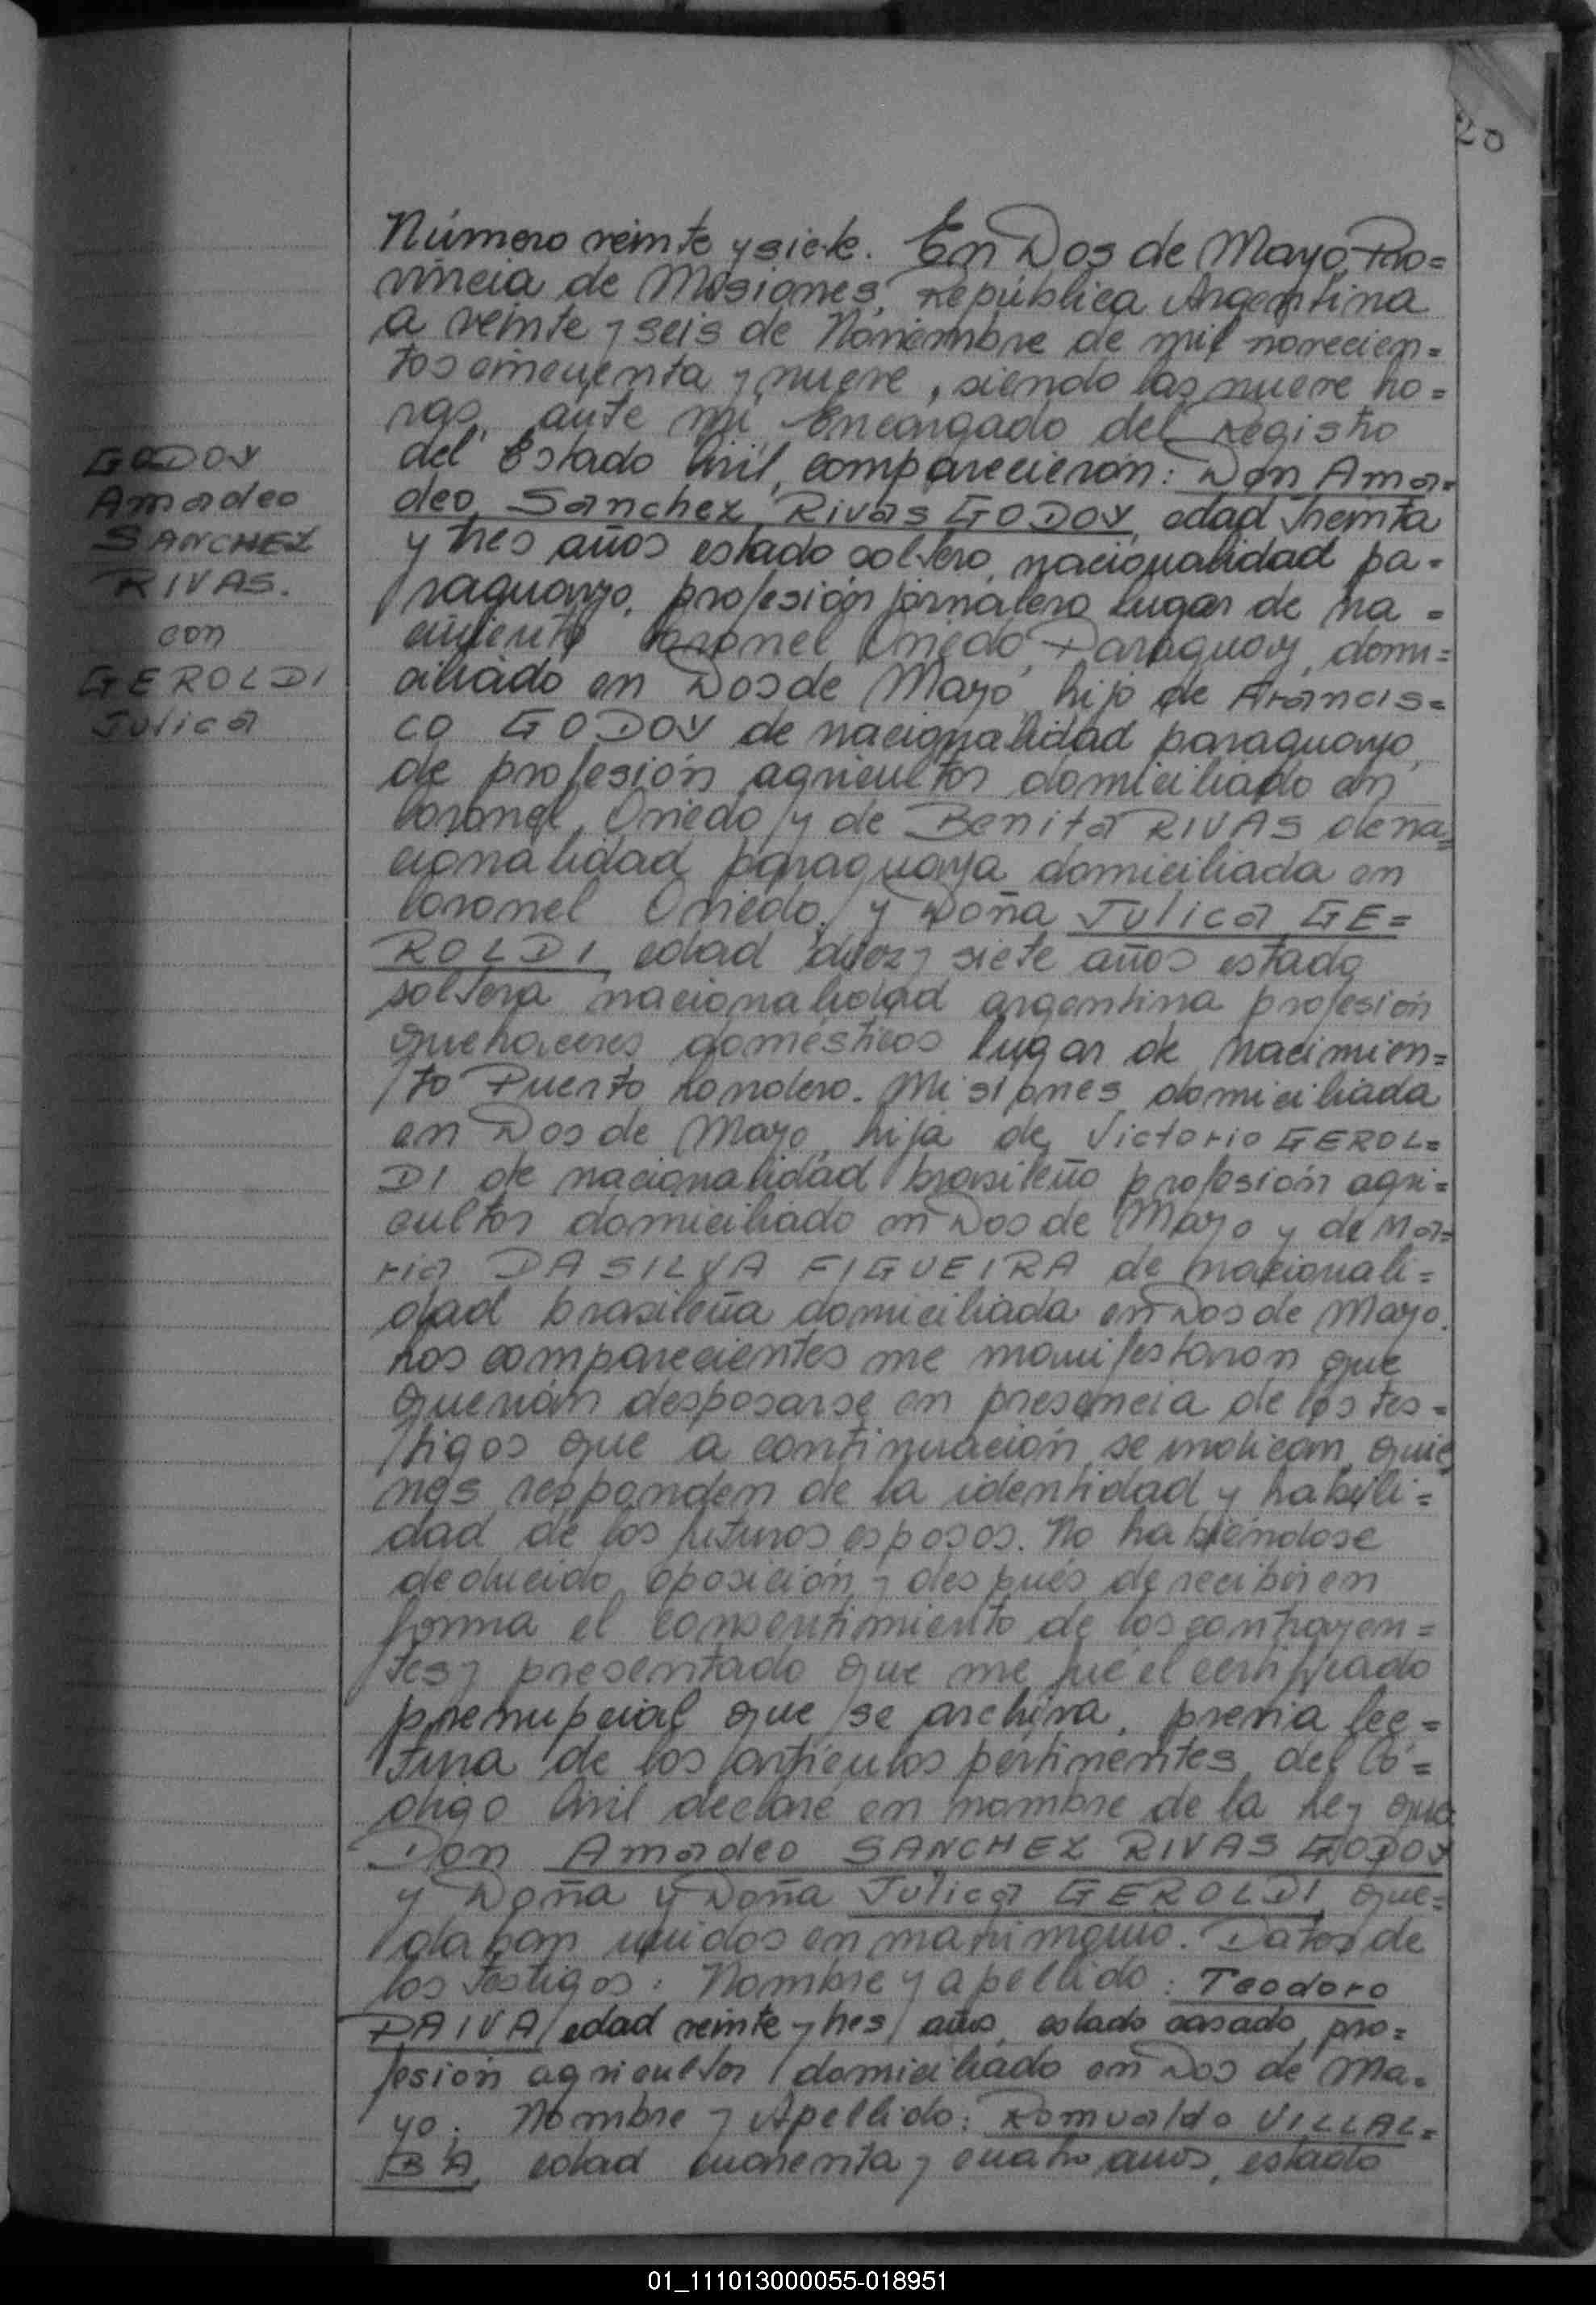 20
Número veinte y siete. En Dos de Mayo, Pro=
vincia de Misiones, República Argentina
a veinte y seis de Noviembre de mil novecien=
tos cincuenta y nueve, siendo las nueve ho=
ras, ante mi Encargado del Registro
del Estado Civil, comparecieron: Don Ama=
deo Sanchez Rivas GODOY, edad treinta
y tres años estado soltero, nacionalidad pa=
raguayo, profesión jornalero lugar de na=
cimiento Coronel Oviedo, Paraguay, domi=
ciliado en Dos de Mayo, hijo de Francis=
co GODOY de nacionalidad paraguayo,
de profesión agricultor domiciliado en
Coronel Oviedo y de Benita RIVAS de na=
cionalidad paraguaya domiciliada en
Coronel Oviedo, y Doña Julica GE=
ROLDI, edad diez y siete años estado
soltera nacionalidad argentina profesión
quehaceres domésticos lugar de nacimien=
to Puerto Londero. Misiones domiciliada
en Dos de Mayo, hija de Victorio GEROL=
DI de nacionalidad brasileño profesión agri=
cultor domiciliado en Dos de Mayo y de Ma=
ria DA SILVA FIGUEIRA de nacionali=
dad brasileña domiciliada en Dos de Mayo.
Los comparecientes me manifestaron que
querían desposarse en presencia de los tes=
tigos que a continuación se indican, quie
nes responden de la identidad y habili=
dad de los futuros esposos. No habiéndose
deducido oposición y después de recibir en
forma el consentimiento de los contrayen=
tes y presentado que me fué el certificado
prenupcial que se archiva, previa lec=
tura de los artículos pertinentes del Có=
digo Civil declaré en nombre de la Ley que
Don Amadeo SANCHEZ RIVAS GODOY
y Doña y Doña Julica GEROLDI, que=
daban unidos en matrimonio. Datos de
los testigos: Nombre y apellido: Teodoro
PAIVA, edad veinte y tres años, estado casado, pro=
fesión agricultor domiciliado en Dos de Ma=
yo. Nombre y Apellido: Romualdo VILLAL=
BA, edad cuarenta y cuatro años, estado
GODOY
Amadeo
SANCHEZ
RIVAS.
con
GEROLDI
Julica
01_111013000055-018951